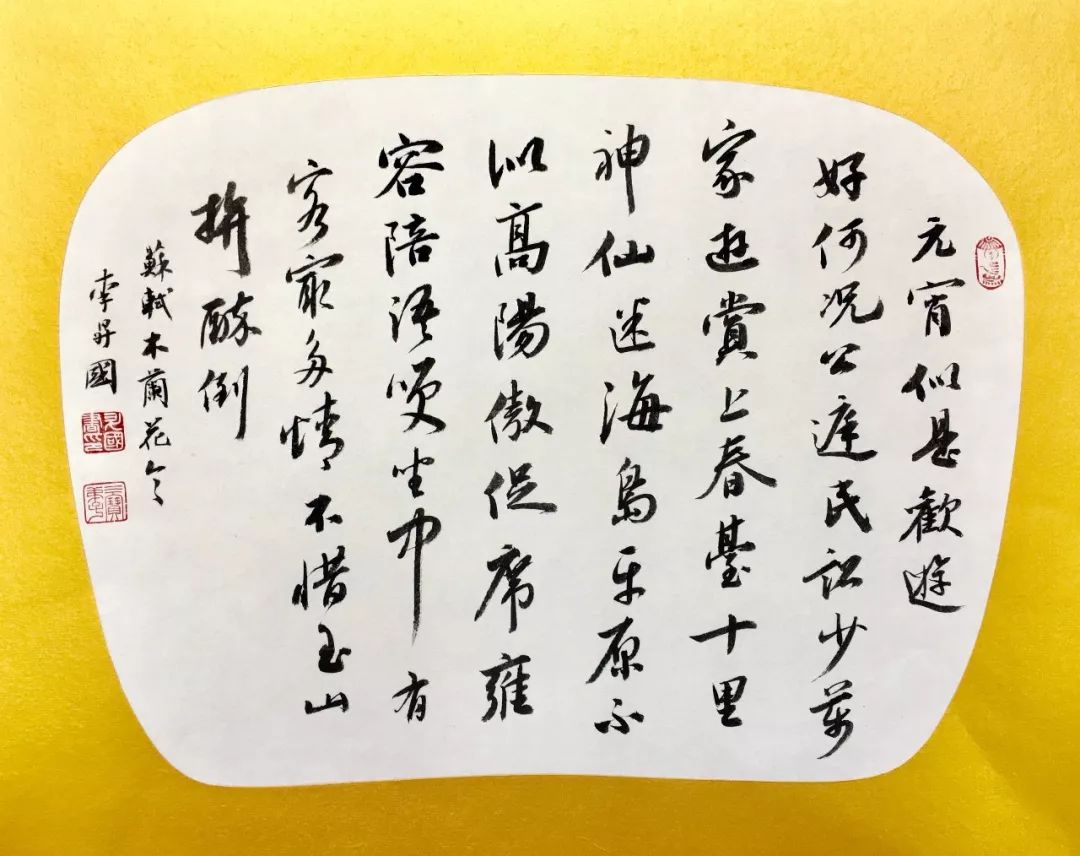 元宵似是歡遊
好何況公庭民訟少萬
家遊賞上春臺十里
神仙迷海島平原不
似高陽傲促席雍
容陪語笑坐中有
客最多情不惜玉山
拚醉倒
蘇軾木蘭花令
李昇國